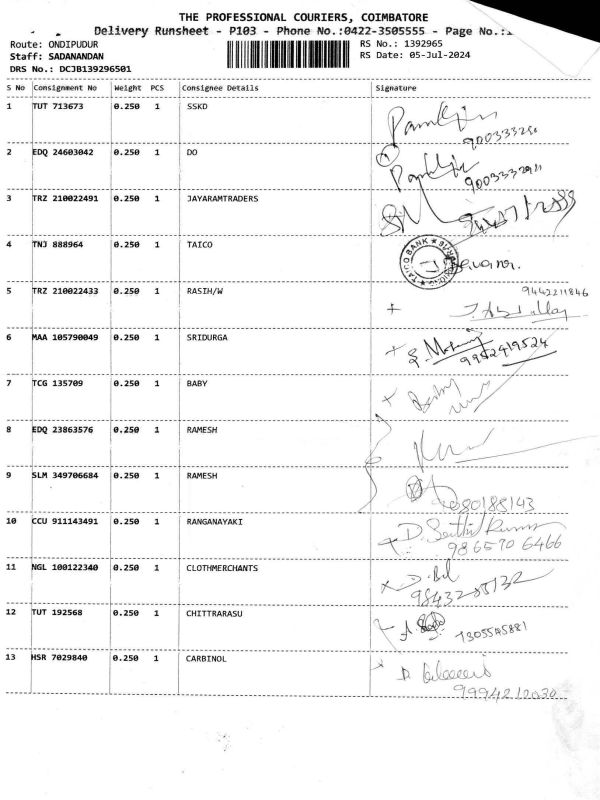 THE PROFESSIONAL COURIERS, COIMBATORE
Delivery Runsheet - P103 - Phone No.:0422-3505555 - Page No.:
Route: ONDIPUDUR RS No.: 1392965
Staff: SADANANDAN RS Date: 05-Jul-2024
DRS No.: DCJB139296501
S No Consignment No Weight PCS Consignee Details Signature
1 TUT 713673 0.250 1 SSKD
2 EDQ 24603042 0.250 1 DO
3 TRZ 210022491 0.250 1 JAYARAMTRADERS
4 TNJ 888964 0.250 1 TAICO
TAICO BANK
5 TRZ 210022433 0.250 1 RASIH/W 9442211846
6 MAA 105790049 0.250 1 SRIDURGA 9952419524
7 TCG 135709 0.250 1 BABY Baby
8 EDQ 23863576 0.250 1 RAMESH
9 SLM 349706684 0.250 1 RAMESH
10 CCU 911143491 0.250 1 RANGANAYAKI D. Senthil Kumar
986570 6466
11 NGL 100122340 0.250 1 CLOTHMERCHANTS
12 TUT 192568 0.250 1 CHITTRARASU
13 HSR 7029840 0.250 1 CARBINOL